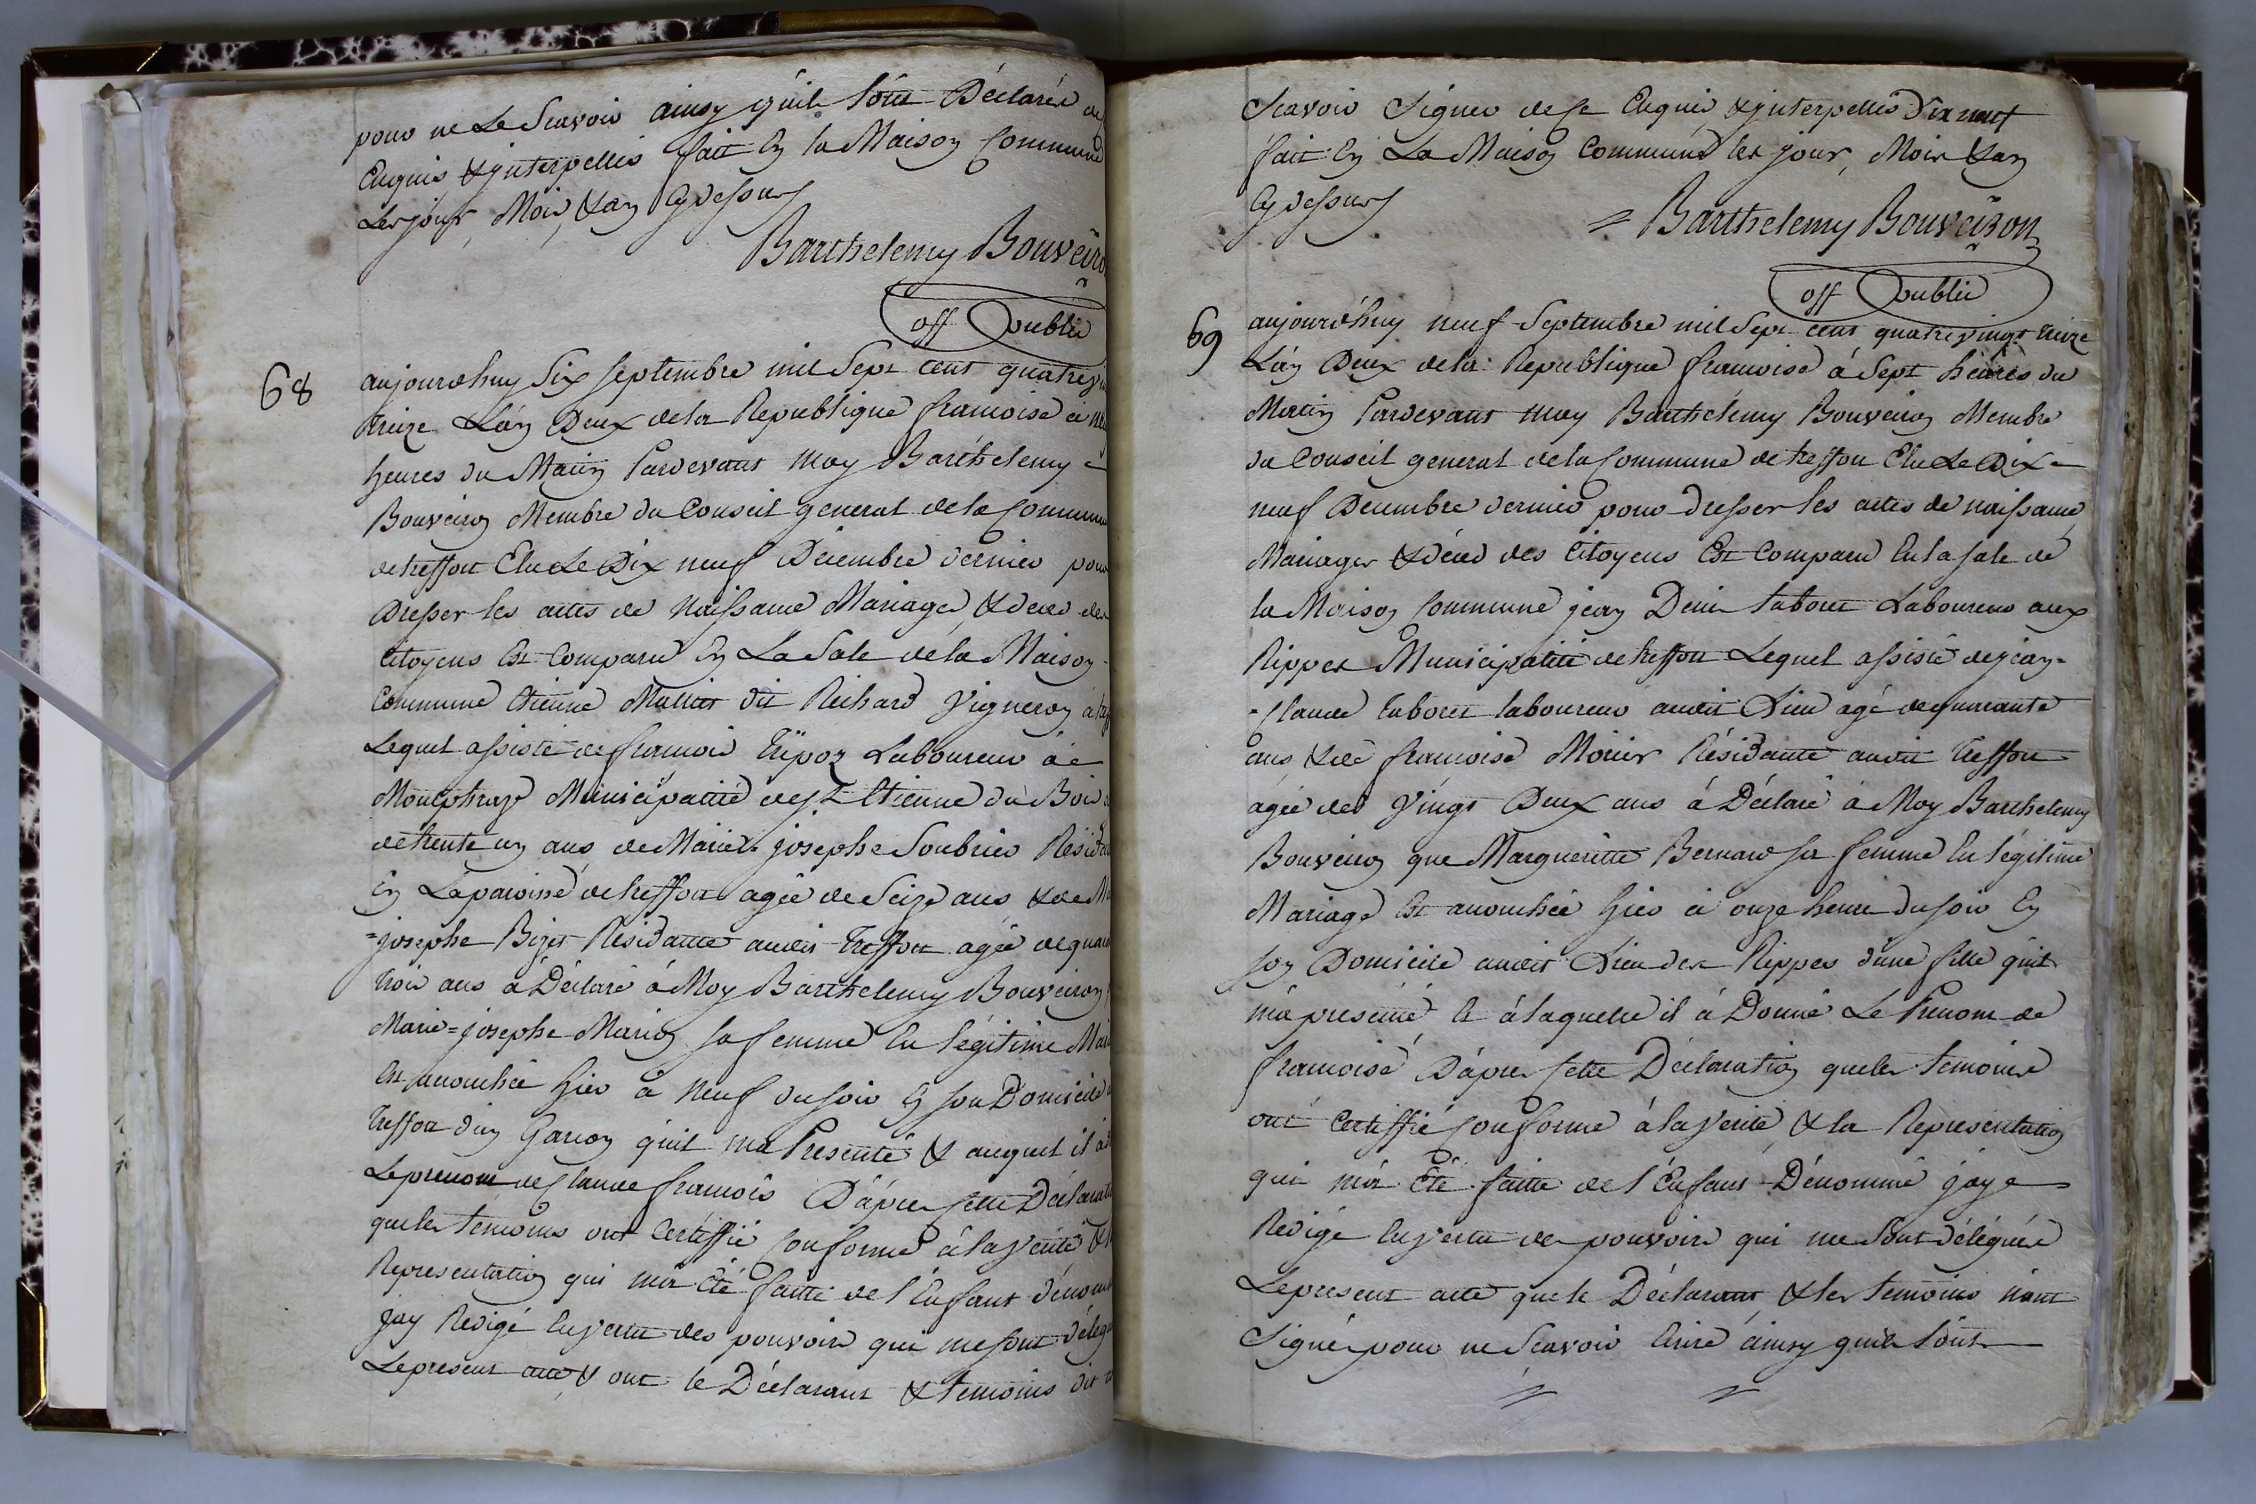 pour ne Le Scavoir ainsy quils l'ônt Déclarés de
Enquis & jnterpellés fait En la Maison Commune
Les jour, Mois, & an Cydessus
Barthelemy Bouveiro
off Public
68
aujourdhuy Six septembre mil Sept cent quatrevin
treize L'an Deux de la Republique francoise à neu
heures du Matin Pardevant moy Barthelemy =
Bouveiron Membre du Conseil general de la Commune
de treffort Elu Le Dix neuf Décembre dernier pour
Dresser les actes de Naissance Mariages, & deces des
Citoyens Est Comparu En La Sale de la Maison =
Commune Etienne dit Richard Vigneron à
Lequel assisté de francois Laboureur à =
Municipalité de St Etienne du Bois
de trente un ans de Marie josephe Soubrier Résida
En La paroisse de treffort agée de Seize ans & de M
=josephe Bizet Résidante audit treffort agée de quar
trois ans à Déclaré à Moy Barthelemy Bouveiron
Marie=josephe Marion sa femme En légitime Mari
Est accouchée hier à Neuf du soir En son Domicile a
treffort d'un Garcon quil ma Presenté & auquel il à
Le prenom de Claude francois D'àpres cette Déclarati
que les temoins ont Certiffié Conforme à la verité & l
Representation qui m'a Eté faitte de l'Enfant dénomm
jay Redigé En vertu des pouvoirs qui me sont délégu
Le present acte, & ont le Déclarant & temoins dit n
Scavoir Signer de ce Enquis & jnterpellés
fait En La Maison Commune les jour, Mois & an
Cydessus
= Barthelemy Bouveiron
off Public
69
aujourd'huy neuf Septembre mil Sept cent quatrevingt treize
L'an Deux de la Republique francoise à Sept heures du
Matin Pardevant moy Barthelemy Bouveiron Membre
du Conseil general de la Commune de treffort Elu Le Dix =
neuf Décembre dernier pour dresser les actes de naissance
Mariages & déces des Citoyens Est Comparu En la sale de
la Maison Commune jean Denis taboret Laboureur aux
Rippes Municipalité de treffort Lequel assisté de jean=
=Claude taboret laboureur audit Lieu agé de quarante
ans & de francoise Résidante audit treffort
agée de vingt Deux ans à Déclaré à Moy Barthelemy
Bouveiron que Margueritte Bernard sa femme En légitime
Mariage Est accouchée hier à onze heure du soir En
son Domicile audit Lieu des Rippes d'une fille quil
m'a presenté, & à laquelle il à Donné Le Prenom de
francoise, D'apres cette Déclaration que les temoins
ont Certiffié Conforme à la verité, & la Representation
qui m'a Eté faitte de l'Enfant Dénommé j'aye
Redigé En vertu des pouvoirs qui me sont délégués
Le present acte que le Déclarant & les temoins n'ont
Signé pour ne Scavoir Ecrire ainsy quils l'ont